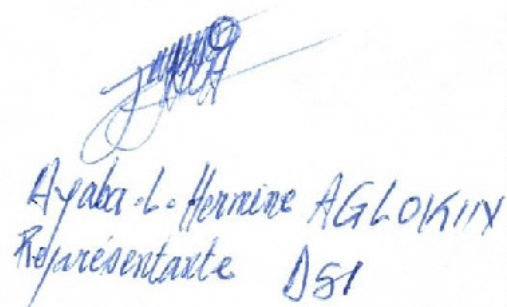 Ayaba.L.Hermine AGLOKIN
Représentante DSI